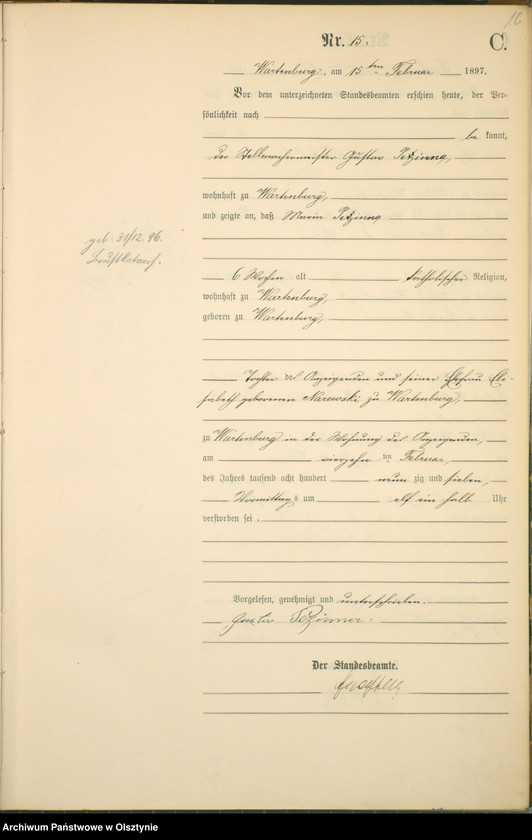 16
Nr. 15.
C.
Wartenburg, am 15ten Februar 1897.
Vor dem unterzeichneten Standesbeamten erschien heute, der Per-
sönlichkeit nach
be kannt,
der Stellmachermeister Gustav
wohnhaft zu Wartenburg,
und zeigte an, daß Maria
geb. 31/12. 96.
Brustkatarrh.
6 Wochen alt katholischer Religion,
wohnhaft zu Wartenburg,
geboren zu Wartenburg,
Tochter des Anzeigenden und seiner Ehefrau Eli-
sabeth geborenen Narewski zu Wartenburg,
zu Wartenburg in der Wohnung des Anzeigenden,
am vierzehn ten Februar,
des Jahres tausend acht hundert neun zig und sieben,
Vormittag s um elf ein halb Uhr
verstorben sei.
Vorgelesen, genehmigt und unterschrieben.
Gustav
Der Standesbeamte.
Archiwum Państwowe w Olsztynie